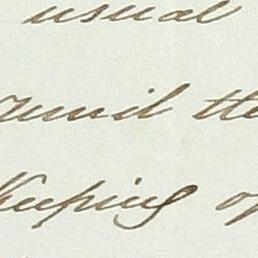 usual
uncil the
Keeping of